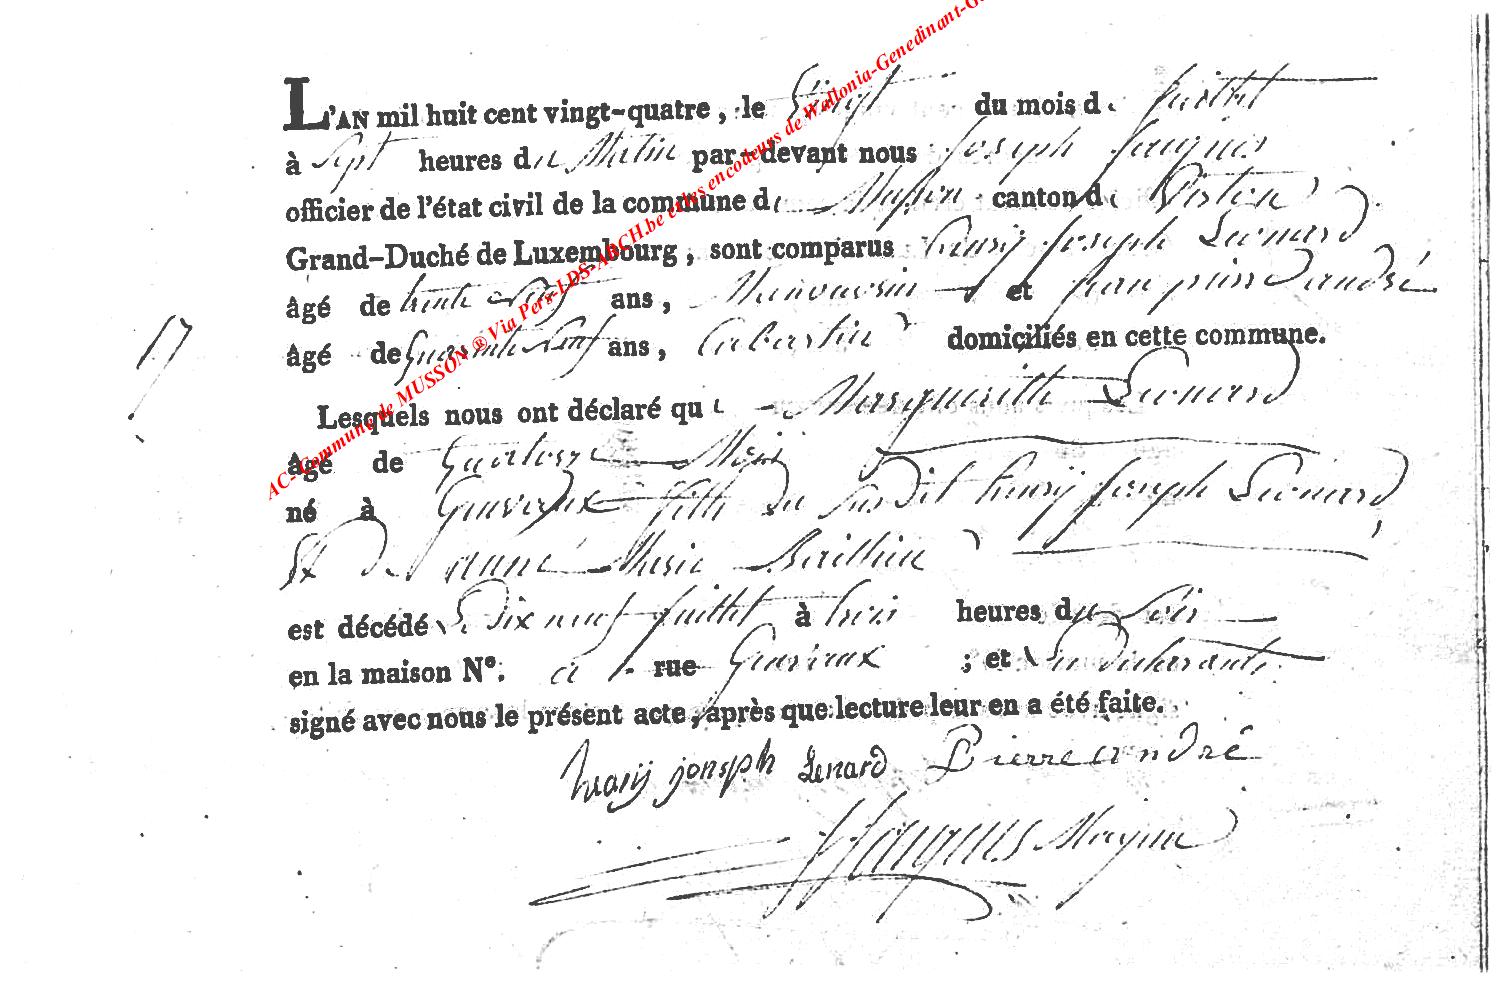 AC-Commune de MUSSON ® Via Pers-LDS-ARCH.be et les encodeurs de Wallonia-Genedinant-G
L'AN mil huit cent vingt-quatre, le Vingt du mois de Juillet
à Sept heures du Matin par-devant nous Joseph Jacques
officier de l'état civil de la commune de Musson canton de Virton
Grand-Duché de Luxembourg, sont comparus henrij Joseph Leonard
âgé de trente neuf ans, Manouvrier et jean pierre andré
âgé de Quarante neuf ans, Cabartier domiciliés en cette commune.
17
Lesquels nous ont déclaré que Margueritte Leonard
âgé de Quatorze Mois
né à Gennevaux fille du Susdit henrij Joseph Leonard
Et De anne Marie
est décédé le Dix neuf Juillet à trois heures du Soir
en la maison N°. rue ; et les Déclarants
signé avec nous le présent acte, après que lecture leur en a été faite.
hranij jonsph Lenard Pierre andré
JJacques Mayeur